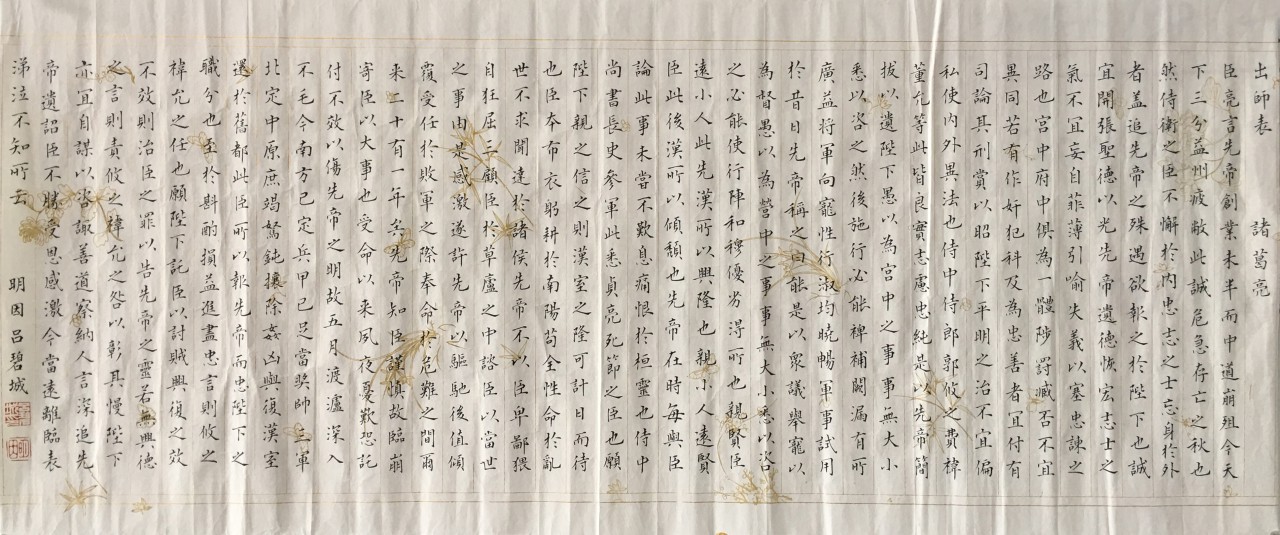 出師表 諸葛亮
臣亮言先帝創業未半而中道崩殂今天
下三分益州疲敝此誠危急存亡之秋也
然侍衛之臣不懈於內忠志之士忘身於外
者盖追先帝之殊遇欲報之於陛下也誠
宜開張聖德以光先帝遺德恢宏志士之
氣不宜妄自菲薄引喻失義以塞忠諫之
路也宮中府中俱為一體陟罰臧否不宜
異同若有作奸犯科及為忠善者宜付有
司論其刑賞以昭陛下平明之治不宜偏
私使內外異法也侍中侍郎郭攸之費禕
董允等此皆良實志慮忠純是以先帝簡
拔以遺陛下愚以為宮中之事事無大小
悉以咨之然後施行必能裨補闕漏有所
廣益将軍向寵性行淑均曉暢軍事試用
於昔日先帝稱之曰能是以衆議舉寵以
為督愚以為營中之事事無大小悉以咨
之必能使行陣和穆優劣淂所也親賢臣
遠小人此先漢所以興隆也親小人遠賢
臣此後漢所以傾頹也先帝在時每與臣
論此事未嘗不歎息痛恨於桓靈也侍中
尚書長史參軍此悉貞亮死節之臣也願
陛下親之信之則漢室之隆可計日而待
也臣本布衣躬耕於南陽苟全性命於亂
世不求聞達於諸侯先帝不以臣卑鄙猥
自狂屈三顧臣於草廬之中諮臣以當世
之事由是感激遂許先帝以驅馳後值傾
覆受任於敗軍之際奉命於危難之間爾
来二十有一年矣先帝知臣謹慎故臨崩
寄臣以大事也受命以来夙夜憂歎恐託
付不效以傷先帝之明故五月渡瀘深入
不毛今南方已定兵甲已足當奖帥三軍
北定中原庶竭駑鈍攘除姦凶興復漢室
還於舊都此臣所以報先帝而忠陛下之
職分也至於斟酌損益進盡忠言則攸之
禕允之任也願陛下託臣以討賊興復之效
不效則治臣之罪以告先帝之靈若無興德
之言則責攸之禕允之咎以彰其慢陛下
亦宜自謀以咨諏善道察納人言深追先
帝遺詔臣不勝受恩感激今當遠離臨表
涕泣不知所云 明因呂碧城